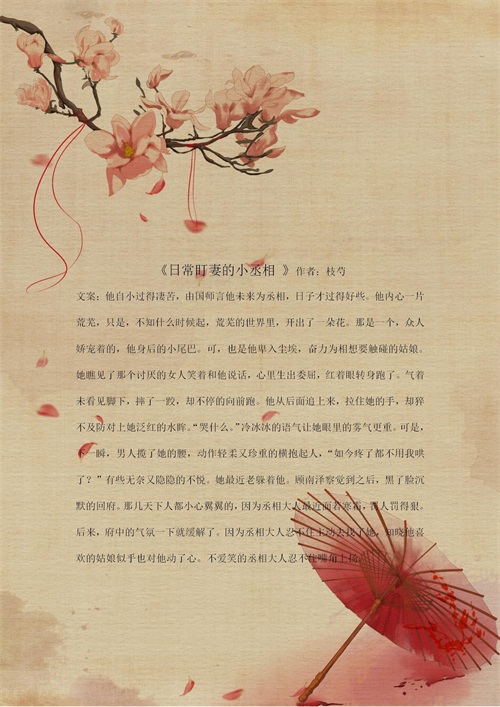 《日常盯妻的小丞相 》作者：枝芍
文案：他自小过得凄苦，由国师言他未来为丞相，日子才过得好些。他内心一片
荒芜，只是，不知什么时候起，荒芜的世界里，开出了一朵花。那是一个，众人
娇宠着的，他身后的小尾巴。可，也是他卑入尘埃，奋力为相想要触碰的姑娘。
她瞧见了那个讨厌的女人笑着和他说话，心里生出委屈，红着眼转身跑了。气着
未看见脚下，摔了一跤，却不停的向前跑。他从后面追上来，拉住她的手，却猝
不及防对上她泛红的水眸。“哭什么。”冷冰冰的语气让她眼里的雾气更重。可是，
下一瞬，男人揽了她的腰，动作轻柔又珍重的横抱起人，“如今疼了都不用我哄
了？”有些无奈又隐隐的不悦。她最近老躲着他。顾南泽察觉到之后，黑了脸沉
默的回府。那几天下人都小心翼翼的，因为丞相大人最近面若寒霜，罚人罚得狠。
后来，府中的气氛一下就缓解了。因为丞相大人忍不住主动去找了她，知晓他喜
欢的姑娘似乎也对他动了心。不爱笑的丞相大人忍不住嘴角上扬。